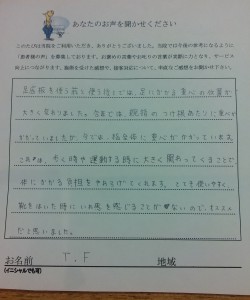 あなたのお声を聞かせください
足底板を使う前と使う後では、足にかかる重心の位置が
大きく変わりました。今までは、親指のつけ根あたりに重心が
かかっていましたが、今では、指全体に重心がかかっています。
これは、歩く時や運動する時に大きく関わってくることで
体にかかる負担をやわらげてくれます。とても使いやすく、
靴をはいた時にいわ感を感じることがないので、オススメ
だと思いました。
お名前 T.F 地域
(イニシャルでも可)